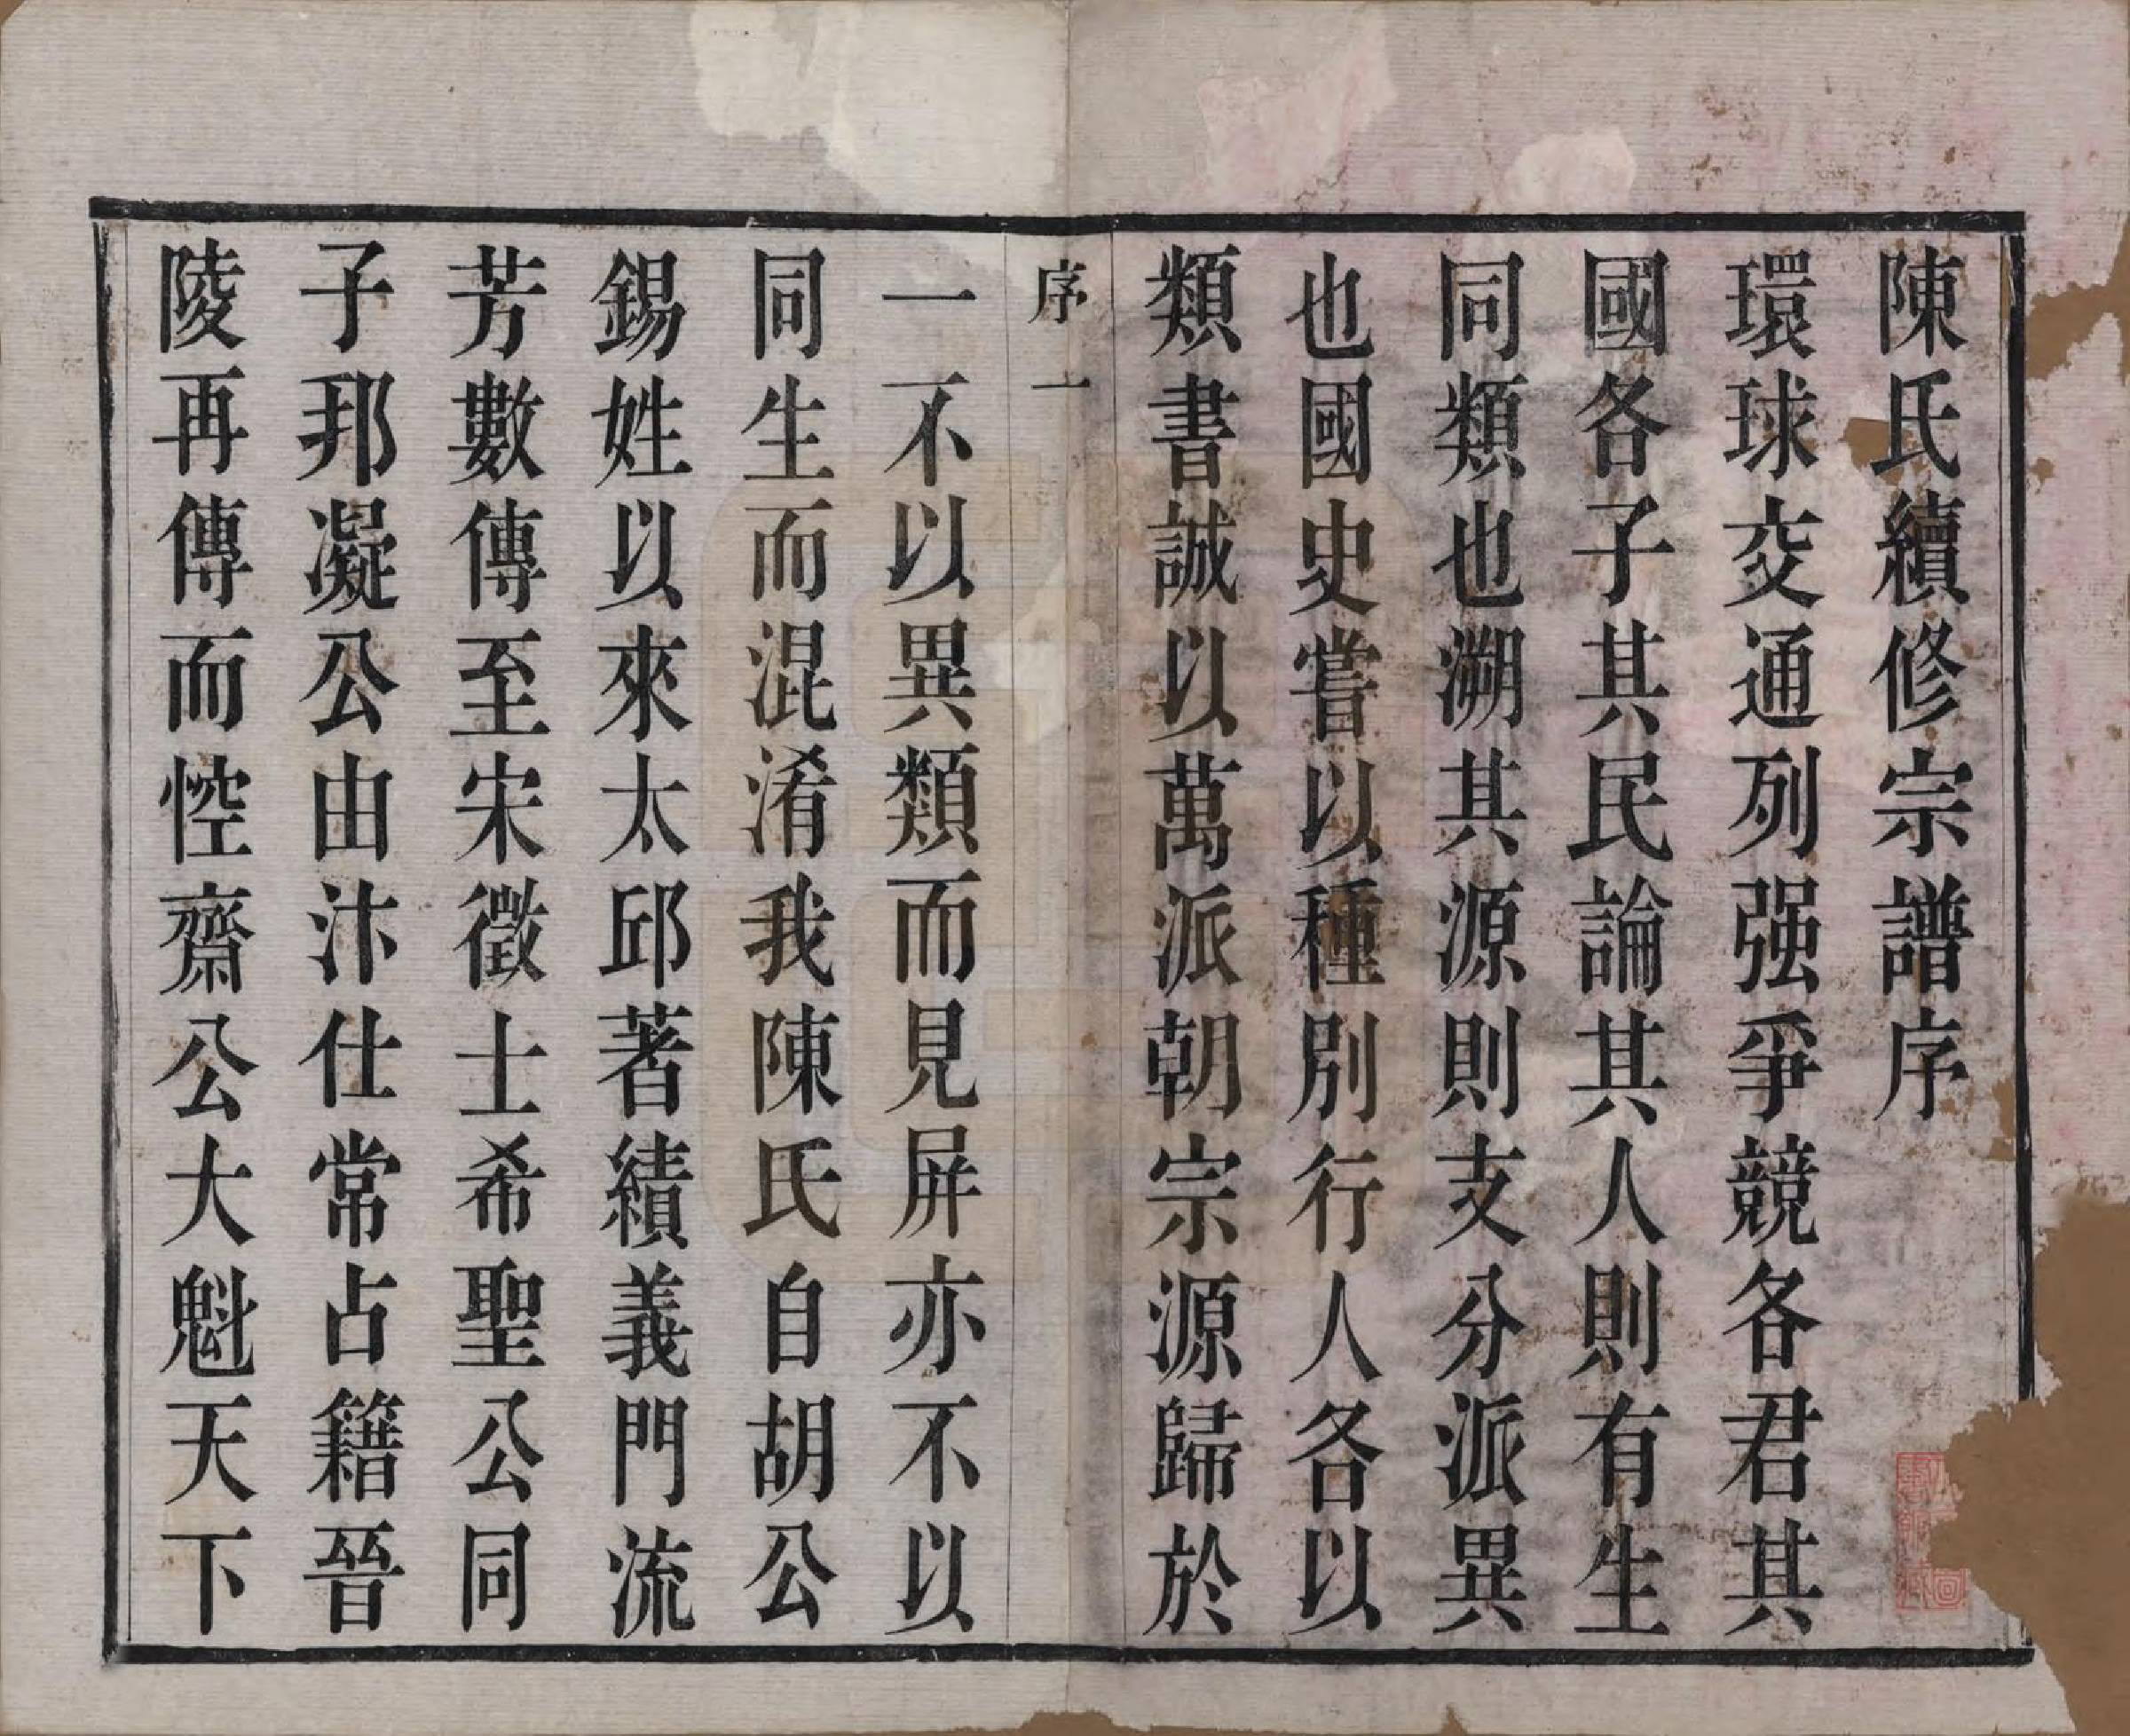 陳氏續修宗譜序
環球交通列强爭競各君其
國各子其民論其人則有生
同類也溯其源則支分派異
也國史嘗以種別行人各以
類書誠以萬派朝宗源歸於
序 一
一不以異類而見屏亦不以
同生而混淆我陳氏自胡公
錫姓以來太邱著績義門流
芳數傳至宋徵士希聖公同
子邦凝公由汴仕常占籍晉
陵再傳而悾齋公大魁天下